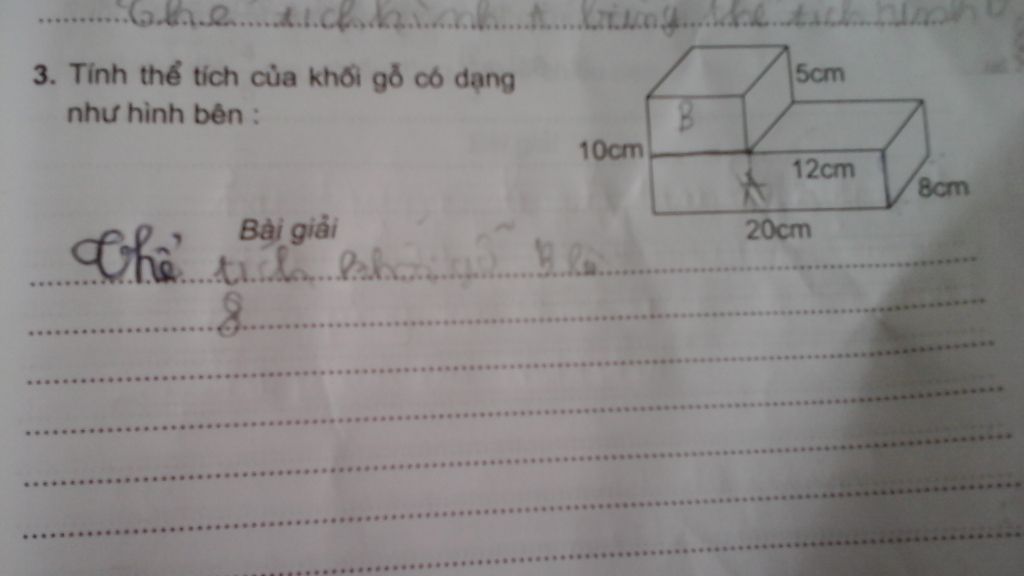 Thể tích hình A bằng thể tích hình
3. Tính thể tích của khối gỗ có dạng
như hình bên :
5cm
B
10cm
12cm
A
8cm
20cm
Bài giải
Thể tích khối gỗ B là
8